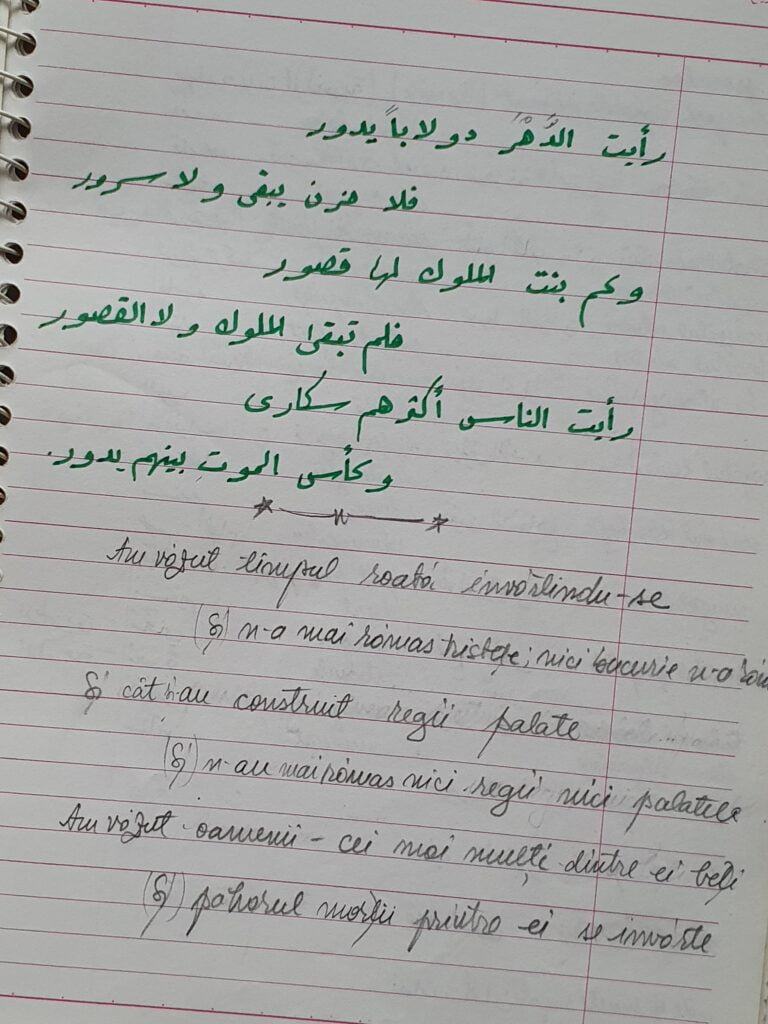 رأيت الدَّهْرَ دولاباً يدور
فلا حزن يبقى ولا سرور
وكم بنت الملوك لها قصور
فلم تبقى الملوك ولا القصور
رأيت الناس أكثرهم سكارى
وكأس الموتِ بينهم يدور.
Am văzut timpul roată învârtindu-se
(Și) n-a mai rămas tristețe; nici bucurie n-a răm
Și cât au construit regii palate
(Și) n-au mai rămas nici regii nici palatele
Am văzut oamenii - cei mai mulți dintre ei beți
(Și) paharul morții printre ei se învârte